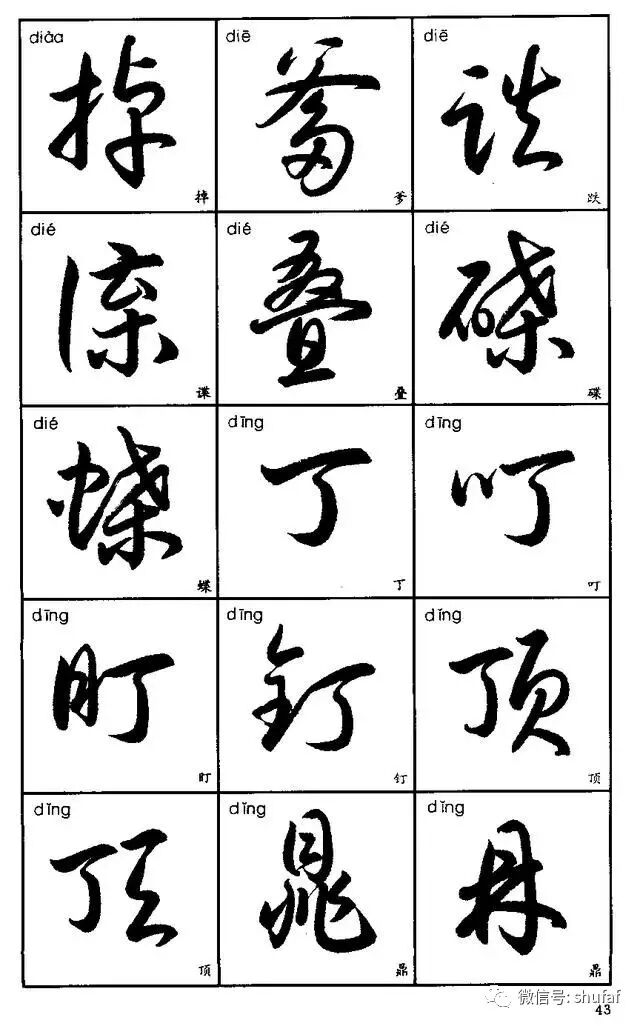 diào diē diē
掉 爹 跌
掉 爹 跌
dié dié dié
谍 叠 碟
谍 叠 碟
dié dīng dīng
蝶 丁 叮
蝶 丁 叮
dīng dīng dǐng
盯 钉 顶
盯 钉 顶
dǐng dǐng dǐng
顶 鼎 鼎
顶 鼎 鼎
微信号: shufaf
43